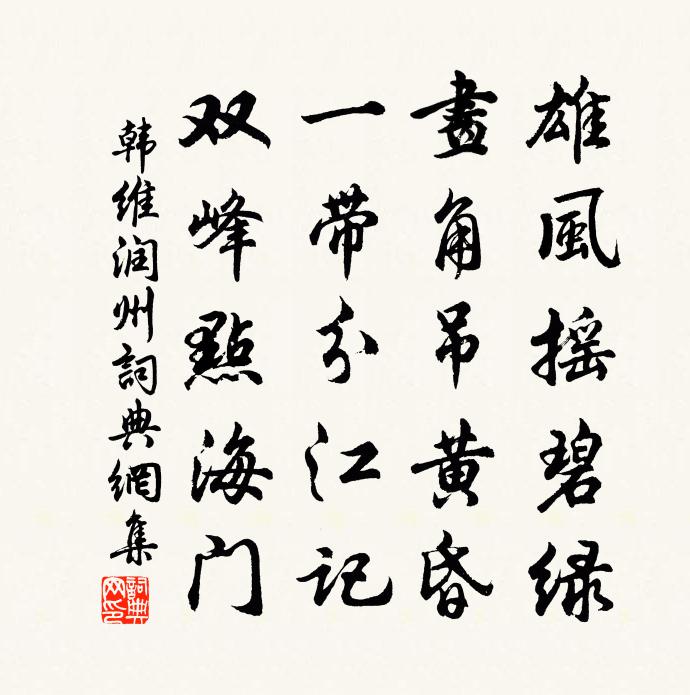 雄風摇碧緑
畫角吊黄昏
一帶分江记
双峰點海门
韩维润州詞典網集
詞典網印